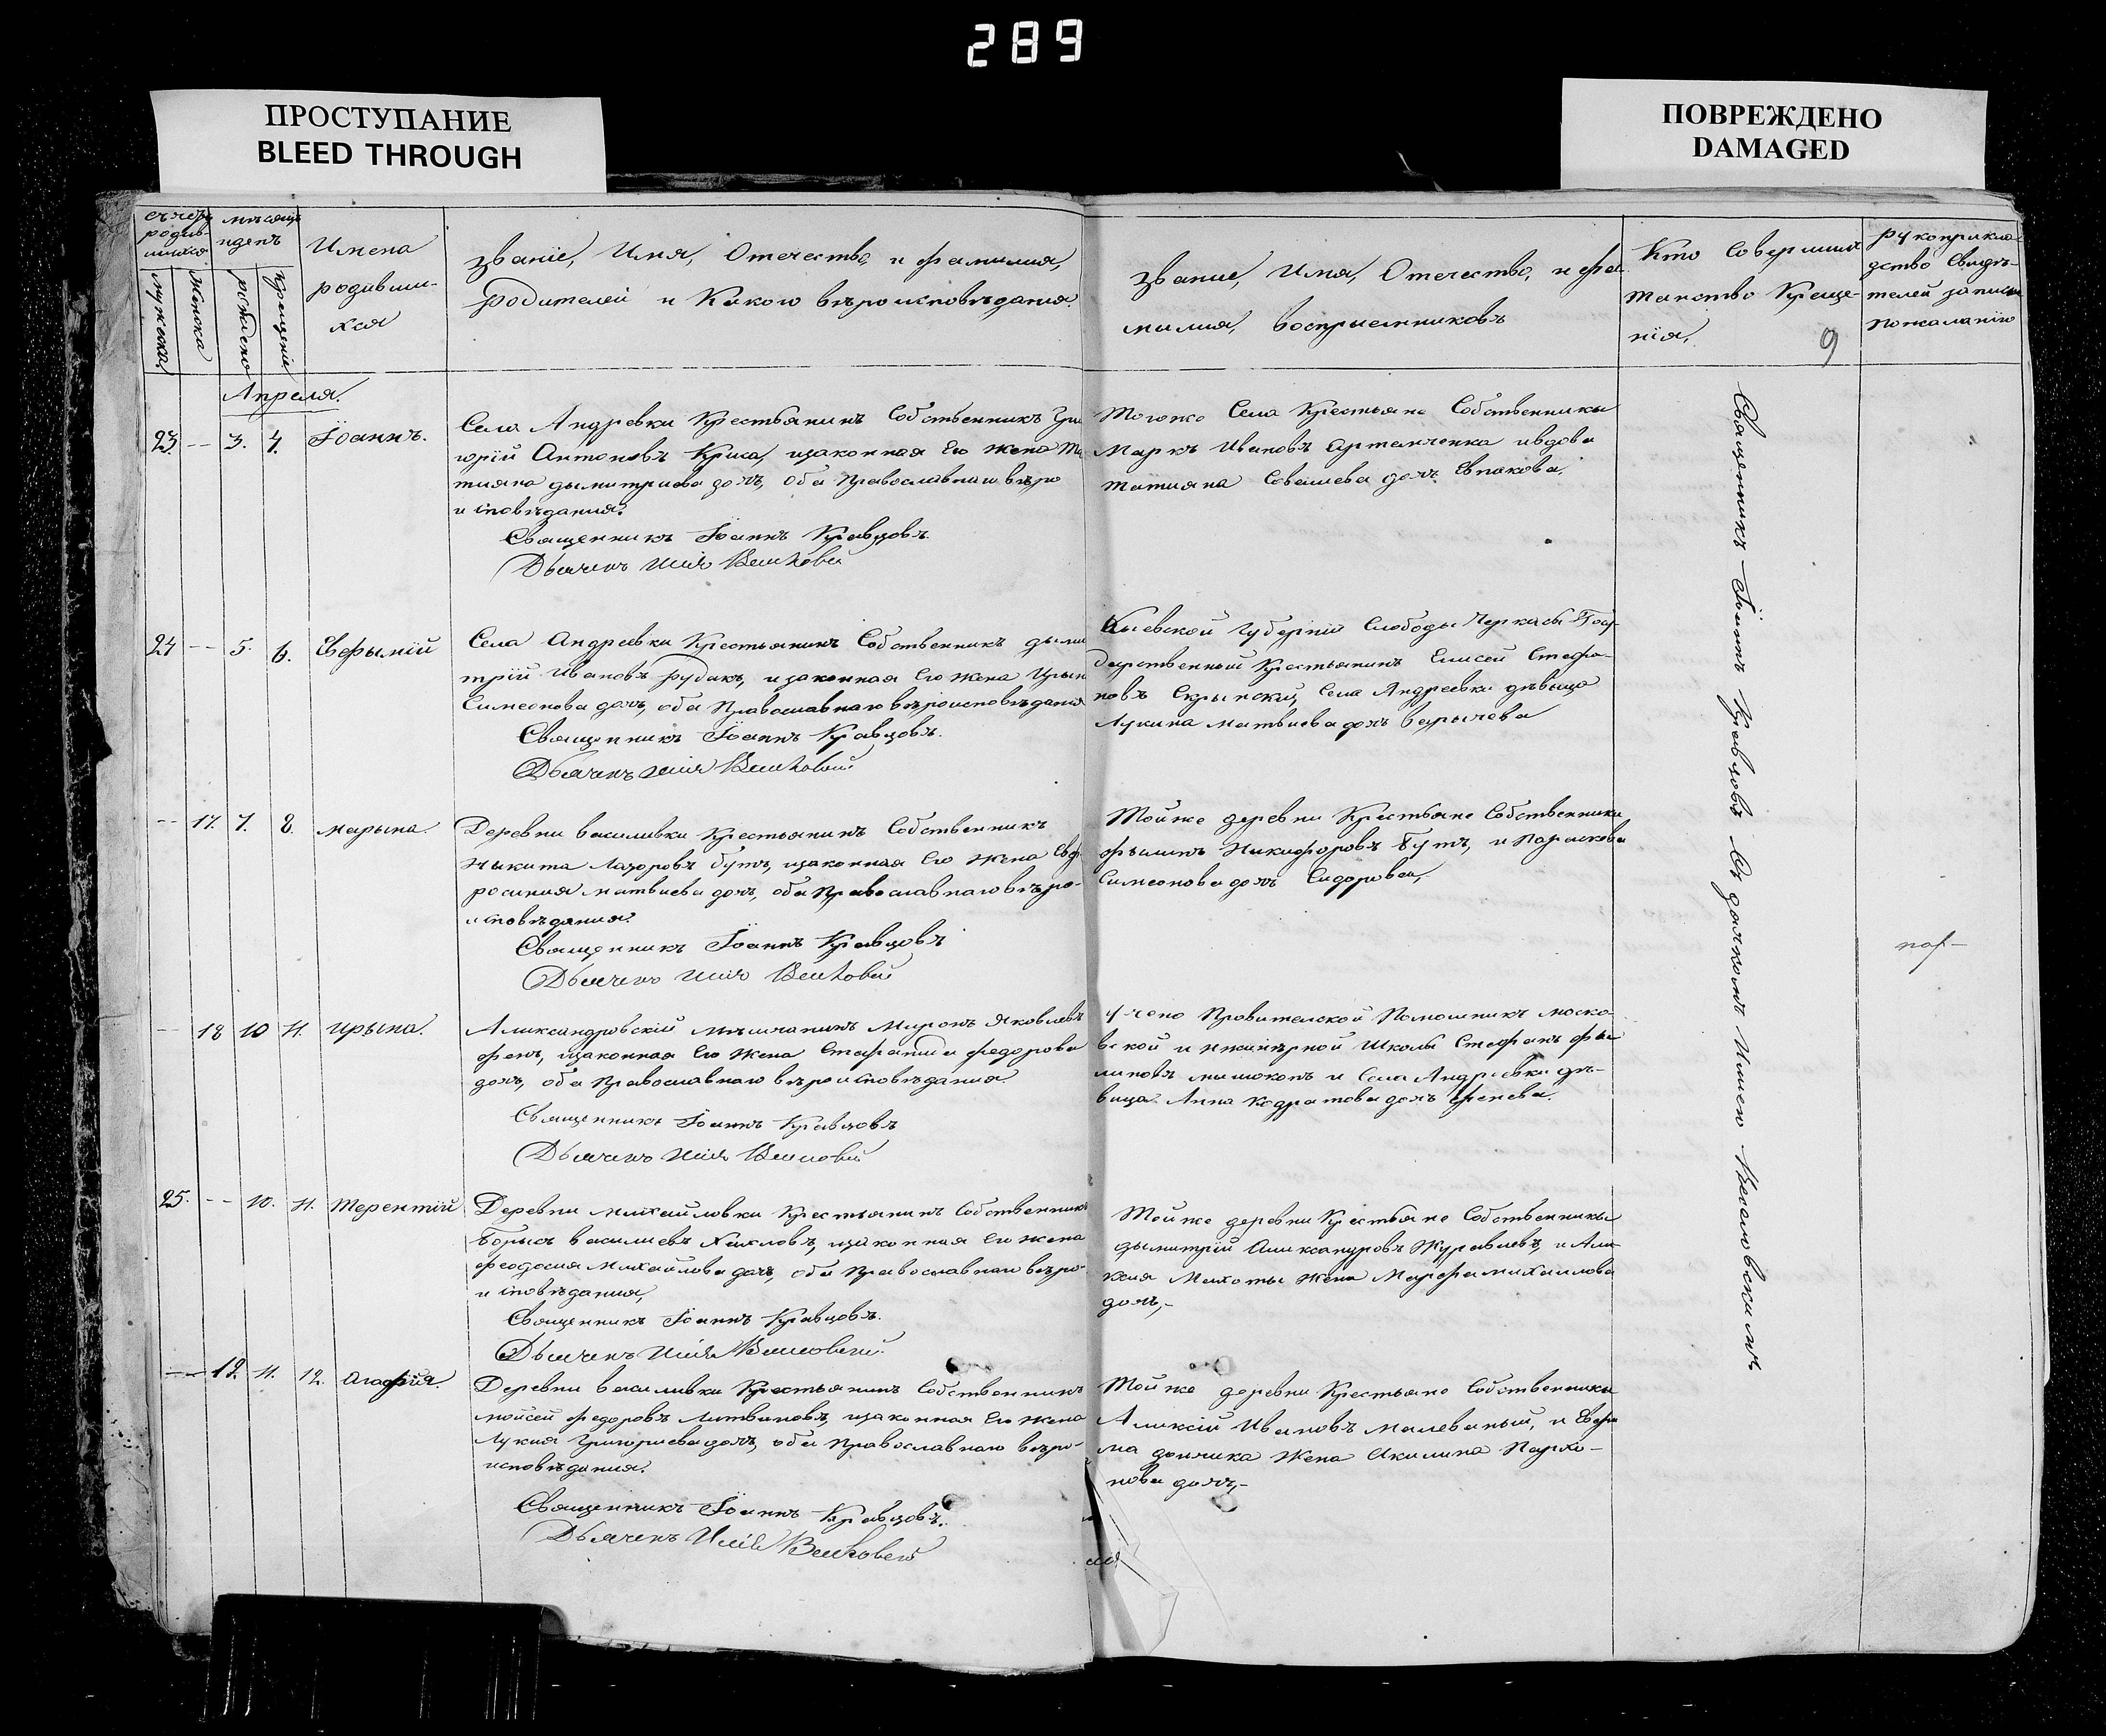 289
ПРОСТУПАНИЕ
BLEED THROUGH
ПОВРЕЖДЕНО
DAMAGED
родив-
шихся
мѣсяцъ
и день
мужеска
женска
рожденія
крещенія
Имена
родивши-
хся
Званіе, Имя, Отечество, и фамилия,
родителей и Какого вѣроисповѣдания.
Званіе, Имя, Отечество, и фа-
милия, воспрыемниковъ
Кто совершилъ
таинство Креще-
нія,
9
рукоприкла-
дство свидѣ-
телей записи
по желанію
Апреля.
23. -- 3. 4. Іоаннъ.
Села Андревки Крестьянинъ Собственникъ Гри
горій Антоновъ Криса, изаконная Его жена Та
тияна дымитриева дочъ, оба Православнаго вѣро
исповѣдания.
Священникъ Іоаннъ Кравцовъ.
Дьячекъ
Тогоже Села Крестьяне Собственники
Маркъ Ивановъ Артеменка ивдова
Татияна дочъ
24 -- 5. 6. Евфымій
Села Андреевки Крестьянинъ Собственникъ дыми
трій Ивановъ рудакъ, изаконная Его жена Ирын
Симеонова дочъ, оба Православнаго вѣроисповѣдания
Священникъ Іоаннъ Кравцовъ.
Дьячекъ
Киевской Губерніи Слободы Черкасы Госу-
дарственный Крестьянинъ Елисей Стефа-
новъ Скрынскій, Села Андреевки дѣвыца
матвиева дочъ
-- 17. 7. 8. марына.
Деревни василивки Крестьянинъ Собственникъ
Ныкита Лазоровъ бутъ, изаконная Его жена Евф
росиния матвиева дочъ, оба Православнаго вѣро-
исповѣдания.
Священникъ Іоаннъ Кравцовъ
Дьячекъ
Тойже деревни Крестьяне Собственники
Никифоровъ Бутъ, и Параскева
Симеонова дочъ Сидорова,
-- 18 10 11. ирына.
Александровскій мѣщанинъ Миронъ Яковлевъ
фенъ, изаконная Его жена Стефанида федорова
дочъ, оба Православнаго вѣроисповѣдания.
Священникъ Іоаннъ Кравцовъ
Дьячекъ
Помошникъ моско-
вской и Школы Стефанъ фи
липовъ и Села Андреевки дѣ-
вица Анна Кодратова дочъ фенева.
25. -- 10. 11. Терентій
Деревни михайловки Крестьянинъ Собственникъ
Борысъ василиевъ изаконная Его жена
феодосия Михайлова дочъ, оба Православнаго вѣро-
исповѣдания,
Священникъ Іоаннъ Кравцовъ.
Дьячекъ
Тойже деревни Крестьяне Собственникы
дымитрій Александровъ Журавлевъ, и Але
ксия Махоты жена Марфа михаилова
дочъ,-
-- 19. 11. 12. Агафія.
Деревни василивки Крестьянинъ Собственникъ
мойсей федоровъ Литвиновъ, изаконная Его жена
Лукия Григориева дочъ, оба Православнаго вѣро-
исповѣдания.
Священникъ Іоаннъ Кравцовъ.
Дьячекъ
Тойже деревни Крестьяне Собственники
Алексій Ивановъ малеваный, и Ефре
ма дончика жена Акилина Пархо-
нова дочъ,-
Священникъ Іоаннъ Кравцовъ Съ дьячкомъ